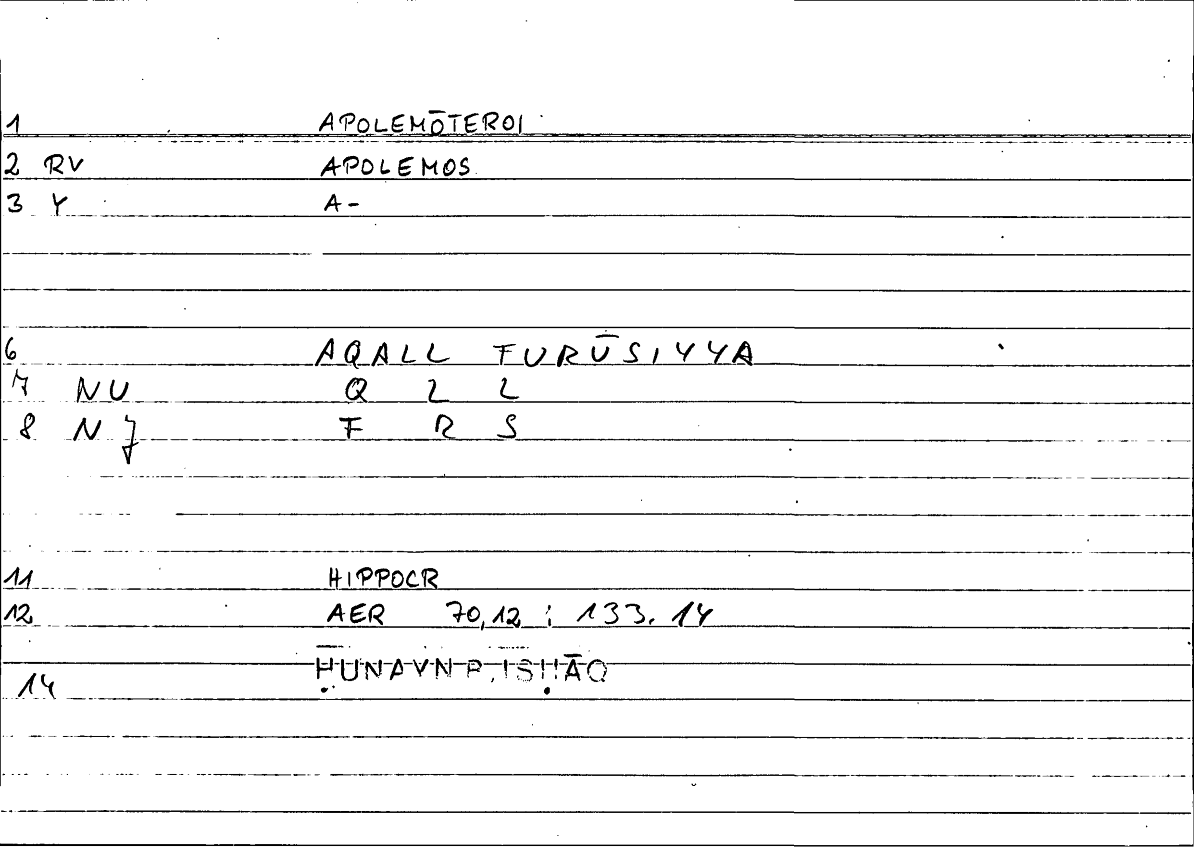 1 APOLEMŌTEROI
2 RV APOLEMOS
3 Y A-
6 AQALL FURŪSIYYA
7 NU Q L L
8 N J F R S
11 HIPPOCR
12 AER 70,12 ; 133.14
14 ḤUNAYN B. ISḤĀQ